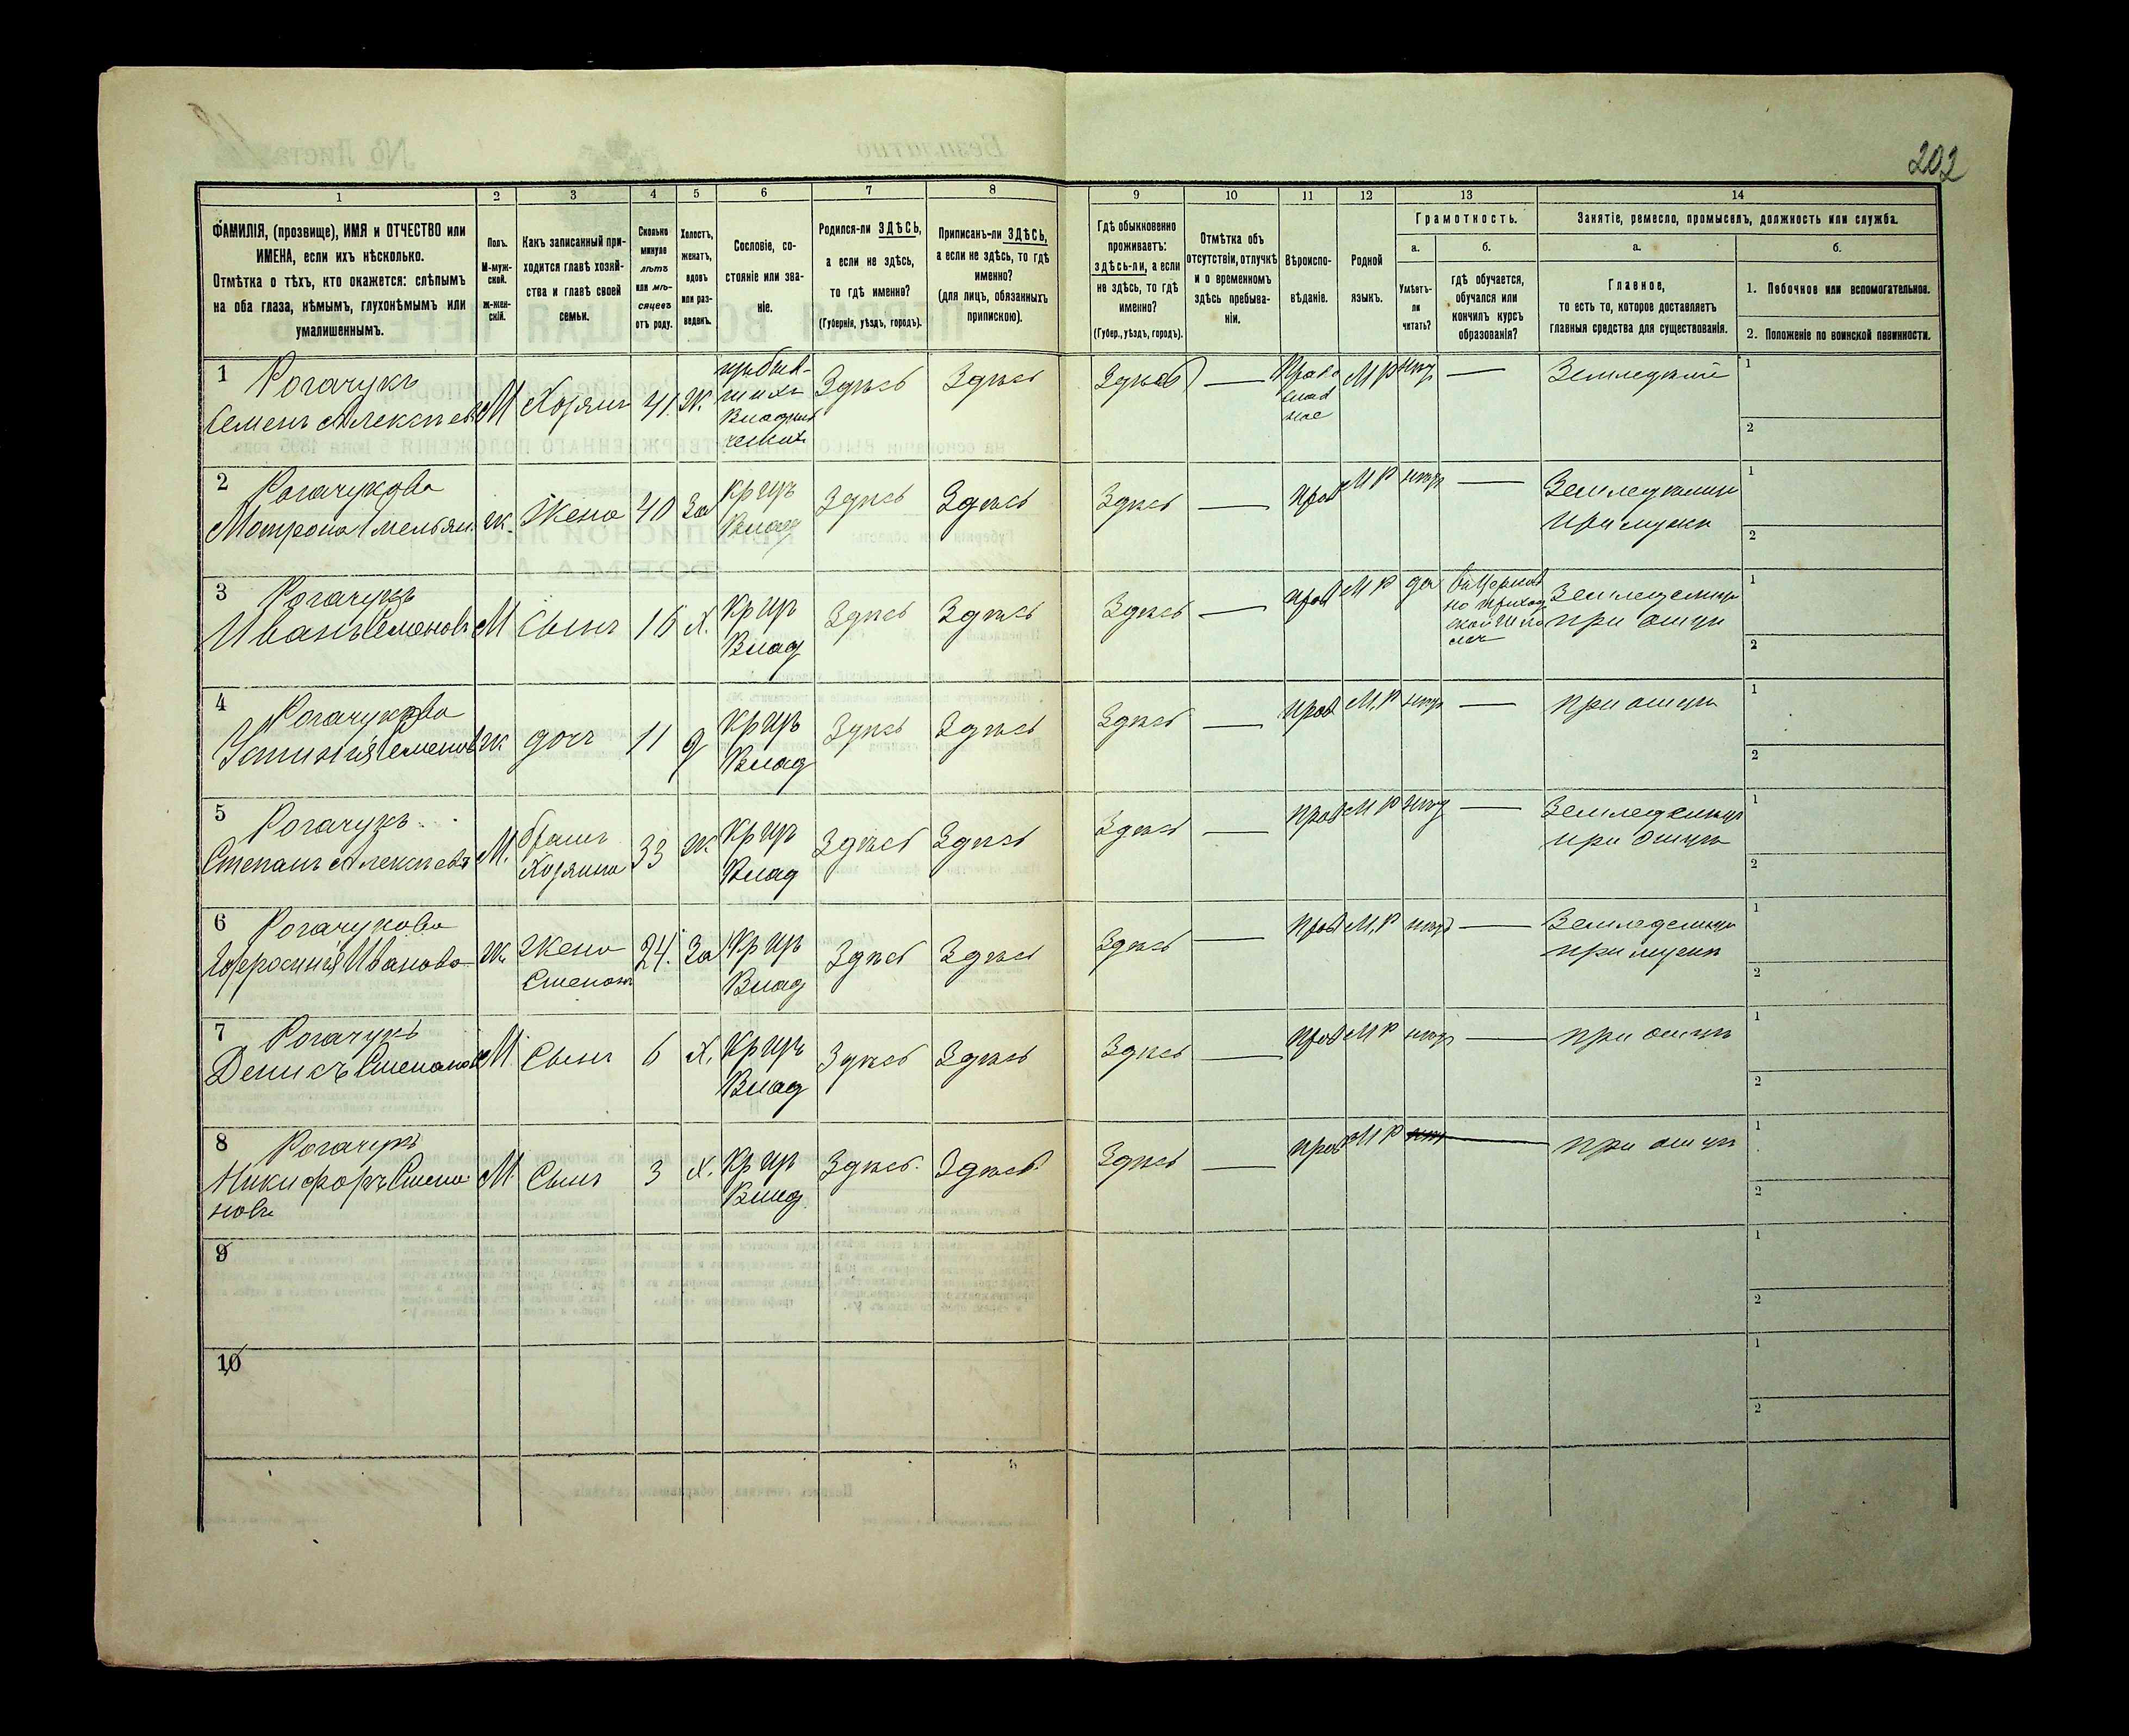 202
1
2
3
4
5
6
7
8
9
10
11
12
13
14
ФАМИЛІЯ, (прозвище), ИМЯ и ОТЧЕСТВО или
ИМЕНА, если ихъ нѣсколько.
Отмѣтка о тѣхъ, кто окажется: слѣпымъ
на оба глаза, нѣмымъ, глухонѣмымъ или
умалишеннымъ.
Полъ.
М-муж-
ской.
Ж-жен-
скій.
Какъ записанный при-
ходится главѣ хозяй-
ства и главѣ своей
семьи.
Сколько
минуло
лѣтъ
или мѣ-
сяцевъ
отъ роду.
Холостъ,
женатъ,
вдовъ
или раз-
веденъ.
Сословіе, со-
стояніе или зва-
ніе.
Родился-ли ЗДѢСЬ,
а если не здѣсь,
то гдѣ именно?
(Губернія, уѣздъ, городъ).
Приписанъ-ли ЗДѢСЬ,
а если не здѣсь, то гдѣ
именно?
(для лицъ, обязанныхъ
припискою).
Гдѣ обыкновенно
проживаетъ:
здѣсь-ли, а если
не здѣсь, то гдѣ
именно?
(Губер., уѣздъ, городъ).
Отмѣтка объ
отсутствіи, отлучкѣ
и о временномъ
здѣсь пребыва-
ніи.
Вѣроиспо-
вѣданіе.
Родной
языкъ.
Грамотность.
а.
Умѣетъ-
ли
читать?
б.
гдѣ обучается,
обучался или
кончилъ курсъ
образованія?
Занятіе, ремесло, промыселъ, должность или служба.
а.
Главное,
то есть то, которое доставляетъ
главныя средства для существованія.
б.
1. Побочное или вспомогательное.
2. Положеніе по воинской повинности.
1 Рогачукъ
Семенъ Алексѣевъ М Хозяинъ 41 Ж. Здѣсь Здѣсь Здѣсь — Право
слав
ное
М Р нѣтъ — Земледѣлие 1
2
2 Рогачукова
Матрона Емельян. Ж. Жена 40 За Кр ир
Влад
Здѣсь Здѣсь Здѣсь — прав М Р нѣтъ — Земледѣлие
при мужѣ
1
2
3 Рогачукъ
Иванъ Семеновъ М Сынъ 16 Х. Кр ир
Влад
Здѣсь Здѣсь Здѣсь — прав М Р да Земледелие
при отцѣ
1
2
4 Рогачукова
Устинія Семенов Ж дочь 11 д Кр ир
Влад
Здѣсь Здѣсь Здѣсь — прав М. Р нѣтъ — при отцѣ 1
2
5 Рогачукъ
Степанъ Алексѣевъ М. братъ
Хозяина
33 Ж Кр ир
Влад
Здѣсь Здѣсь Здѣсь — прав М Р нѣтъ — Земледѣлие
при отцѣ
1
2
6 Рогачукова
Ефросинія Иванова Ж. Жена
Степана
24. За Кр ир
Влад
Здѣсь Здѣсь Здѣсь — прав М. Р нѣтъ — Земледелие
при мужѣ
1
2
7 Рогачукъ
Денисъ Степанов М Сынъ 6 Х. Кр ир
Влад
Здѣсь Здѣсь Здѣсь — прав М Р нѣтъ — при отцѣ 1
2
8 Рогачукъ
Никифоръ Степа
новъ
М. Сынъ 3 Х. Кр ир
Влад
Здѣсь. Здѣсь Здѣсь — прав М Р — при отцѣ 1
2
9 1
2
10 1
2